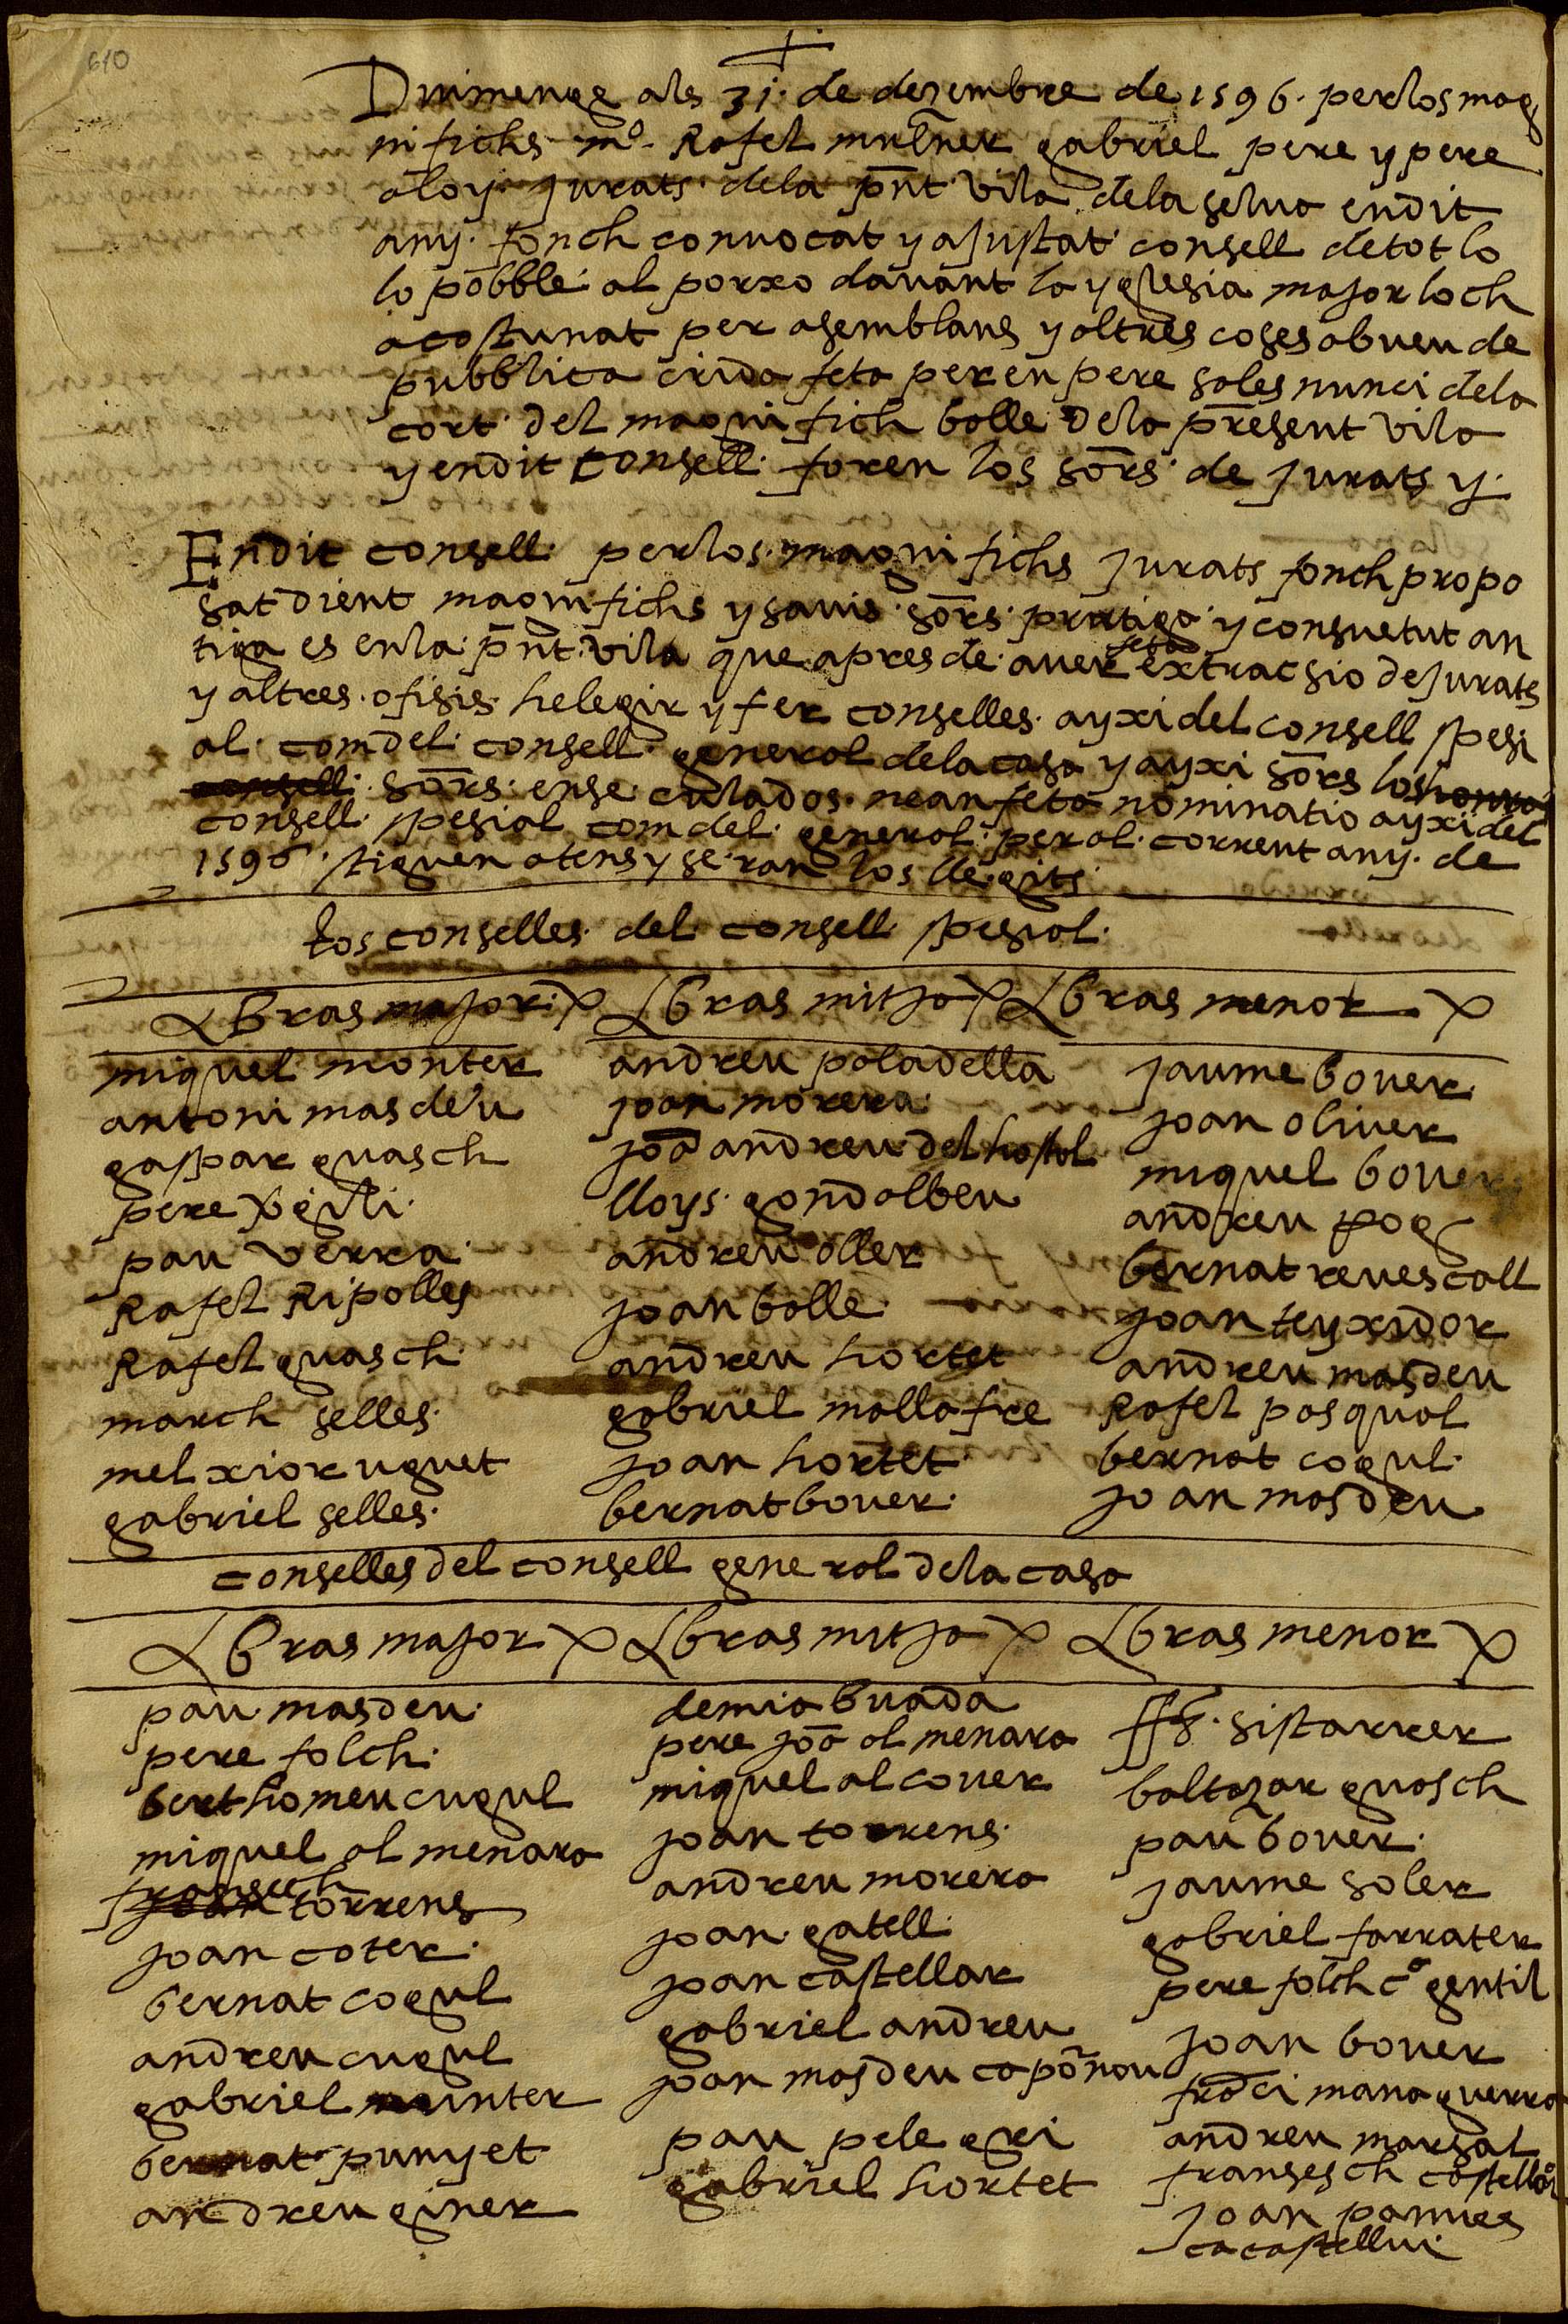 610
Diumenge als 31 de dezembre de 1596 per los mag
nifichs mº Rafel gabriel pere y pere
aloy jurats dela pnt vila dela selva en dit
any fonch convocat y ajustat consell de tot lo
lo pobble al porxo davant la yglesia major loch
acostunat per asemblans y altres coses ab veu de
pubblica crida feta per en pere sales nunci dela
cort del magnifich balle dela present vila
y en dit consell foren los sors de jurats y
En dit consell per los magnifichs jurats fonch propo
sat dient magnifichs y savis sors pratiga y consuetut an
tiga es en la pnt vila que apres de aver feta extracsio de jurats
y altres ofisis helegir y fer conselles ayxi del consell spesi
al com del consell general dela casa y ayxi sors los
consell sors ense culados nean feta nominatio ayxi del
consell spesial com del general per al corrent any de
1596 stiguen atens y seran los llegits
Los conselles del consell spesial
Lo bras major Lo bras mitja Lo bras menor
miquel monter andreu paladella jaume bover
antoni masdeu joan morera joan oliver
gaspar guasch joã andreu del hostal miquel bover
pere virgili lloys gondolbeu andreu pog
pau verra andreu oller bernat revescall
Rafel Ripolles joan balle joan teyxidor
Rafel guasch andreu hortet andreu masdeu
march selles gabriel mallafre Rafel pasqual
melxior uguet joan hortet bernat cogul
gabriel selles bernat bover joan masdeu
conselles del consell general dela casa
Lo bras major Lo bras mitja Lo bras menor
pau masdeu demia buada sistarrer
pere folch pere joã almenara baltazar guasch
berthomeu cugul miquel alcover pau bover
miquel almenara joan torrens jaume soler
fransech joan torrens andreu morera gabriel farrater
joan coter joan gatell pere folch cº gentil
bernat cogul joan castellar joan bover
andreu cugul gabriel andreu frãci managuerra
gabriel munter joan masdeu capõnou andreu marsal
bernat punyet pau pelegri fransesch castella
andreu giner gabriel hortet joan pamies
ca castellvi